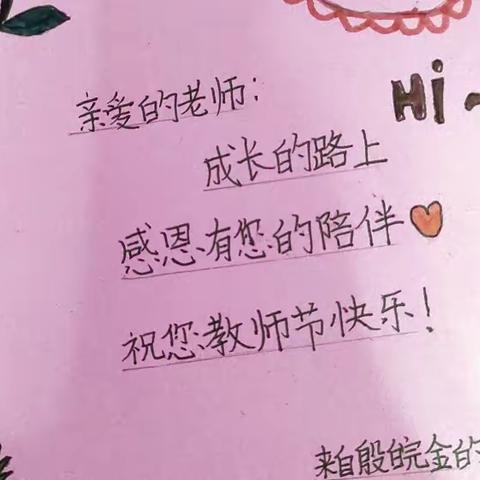 亲爱的老师:
Hi~
成长的路上
感恩有您的陪伴
祝您教师节快乐!
来自殷皖金的